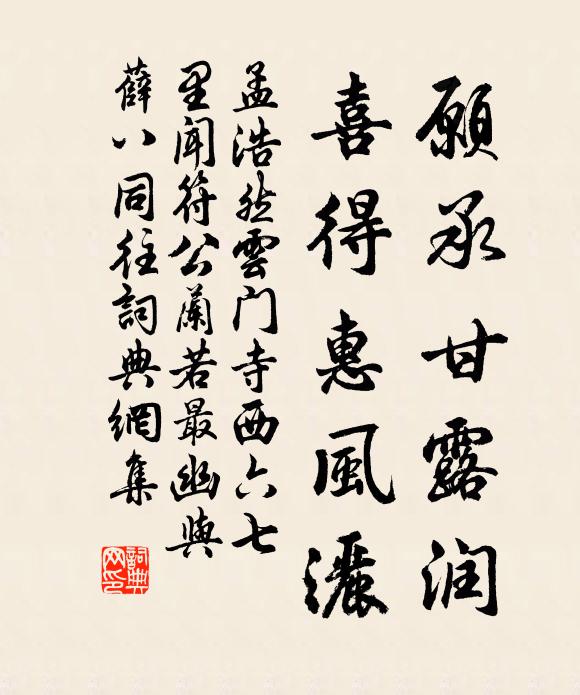 願承甘露润
喜得惠風灑
孟浩然雲门寺西六七
里闻符公蘭若最幽與
薛八同往詞典網集
詞典网印